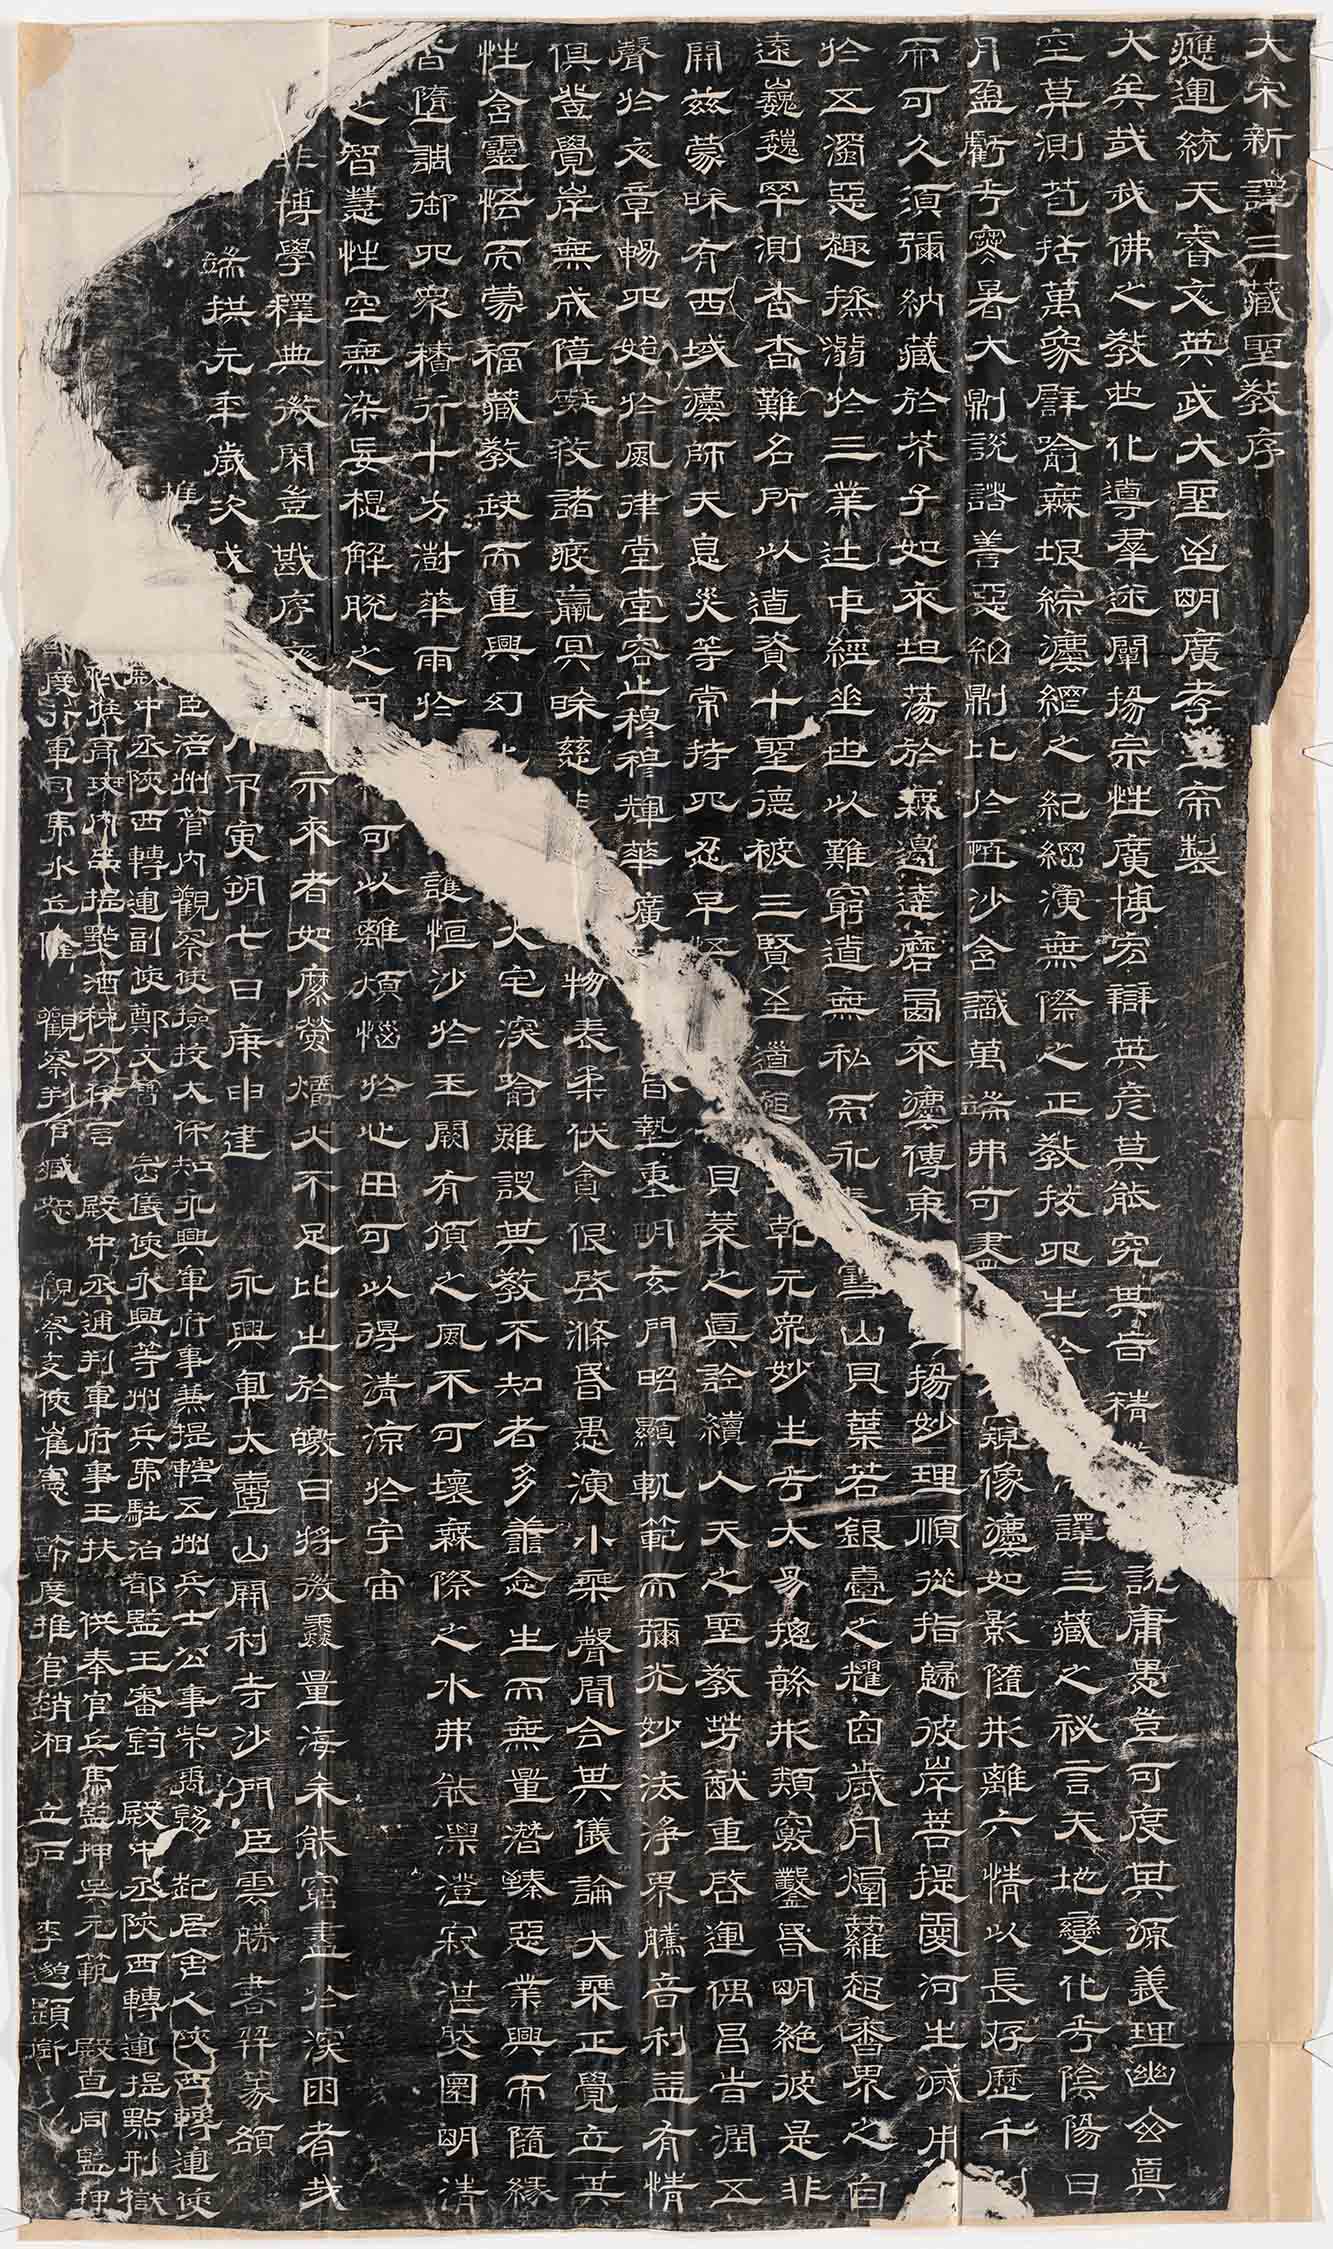 大宋新譯三藏聖教序
應運統天睿文英武大聖至明廣孝皇帝製
大矣哉我佛之教也化導羣迷闡揚宗性廣博宏辯英彥莫能究其旨精 說庸愚豈可度其源義理幽玄真
空莫測苞括萬象譬喻無垠綜法網之紀綱演無際之正教拔四生 譯三藏之祕言天地變化乎陰陽日
月盈虧乎寒暑大則說諸善惡細則比於恒沙含識萬端弗可盡 窺像法如影隨形離六情以長存歷千
而可久須彌納藏於芥子如來坦蕩於無邊達磨西來法傳東 揚妙理順從指歸彼岸菩提愛河生滅用
於五濁惡趣拯溺於三業途中經垂世以難窮道無私而永 雪山貝葉若銀臺之耀目歲月煙蘿超香界之自
遠巍巍罕測杳杳難名所以道資十聖德被三賢至道 乾元眾妙生乎太易總繇形類竅鑿昏明絕彼是非
開茲蒙昧有西域法師天息災等常持四忍早悟 貝葉之真詮續人天之聖教芳猷重啓運偶昌時潤五
聲於文章暢四始於風律堂堂容止穆穆輝華廣 自蟄重明玄門昭顯軌範而彌光妙法淨界騰音利益有情
俱登覺岸無成障礙救諸疲羸冥昧慈悲 物表柔伏貪很啓滌昏愚演小乘聲聞合其儀論大乘正覺立其
性含靈悟而蒙福藏教缺而重興幻 火宅深喻雖設其教不知者多善念生而無量潛臻惡業興而隨緣
皆墮調御四眾積行十方澍華雨於 護恒沙於玉闕有頂之風不可壞無際之水弗能漂澄寂湛然圓明清
之智慧性空無染妄想解脫之 可以離煩惱於心田可以得清涼於宇宙
非博學釋典微閑豈堪序 示來者如縻螢爝火不足比出於皦日將微蠡量海未能窮盡於深困者哉
端拱元年歲次戊 月丙寅朔七日庚申建 永興軍大興山開利寺沙門臣雲勝書并篆額
推
臣涪州管內觀察使撿挍太保知永興軍府事兼提轄五州兵士公事柴禹錫 起居舍人陝西轉運使
殿中丞陝西轉運副使鄭文寶 崇儀使永興等州兵馬駐泊都監王審鈞 殿中丞陝西轉運提點刑獄
祗候高班內品提點酒稅方保言 殿中丞通判軍府事王扶 供奉官兵馬監押吳元範 殿直同監押
節度行軍司馬水丘隆 觀察判官臧 觀察支使崔憲 節度推官趙湘 立石 李邈顯